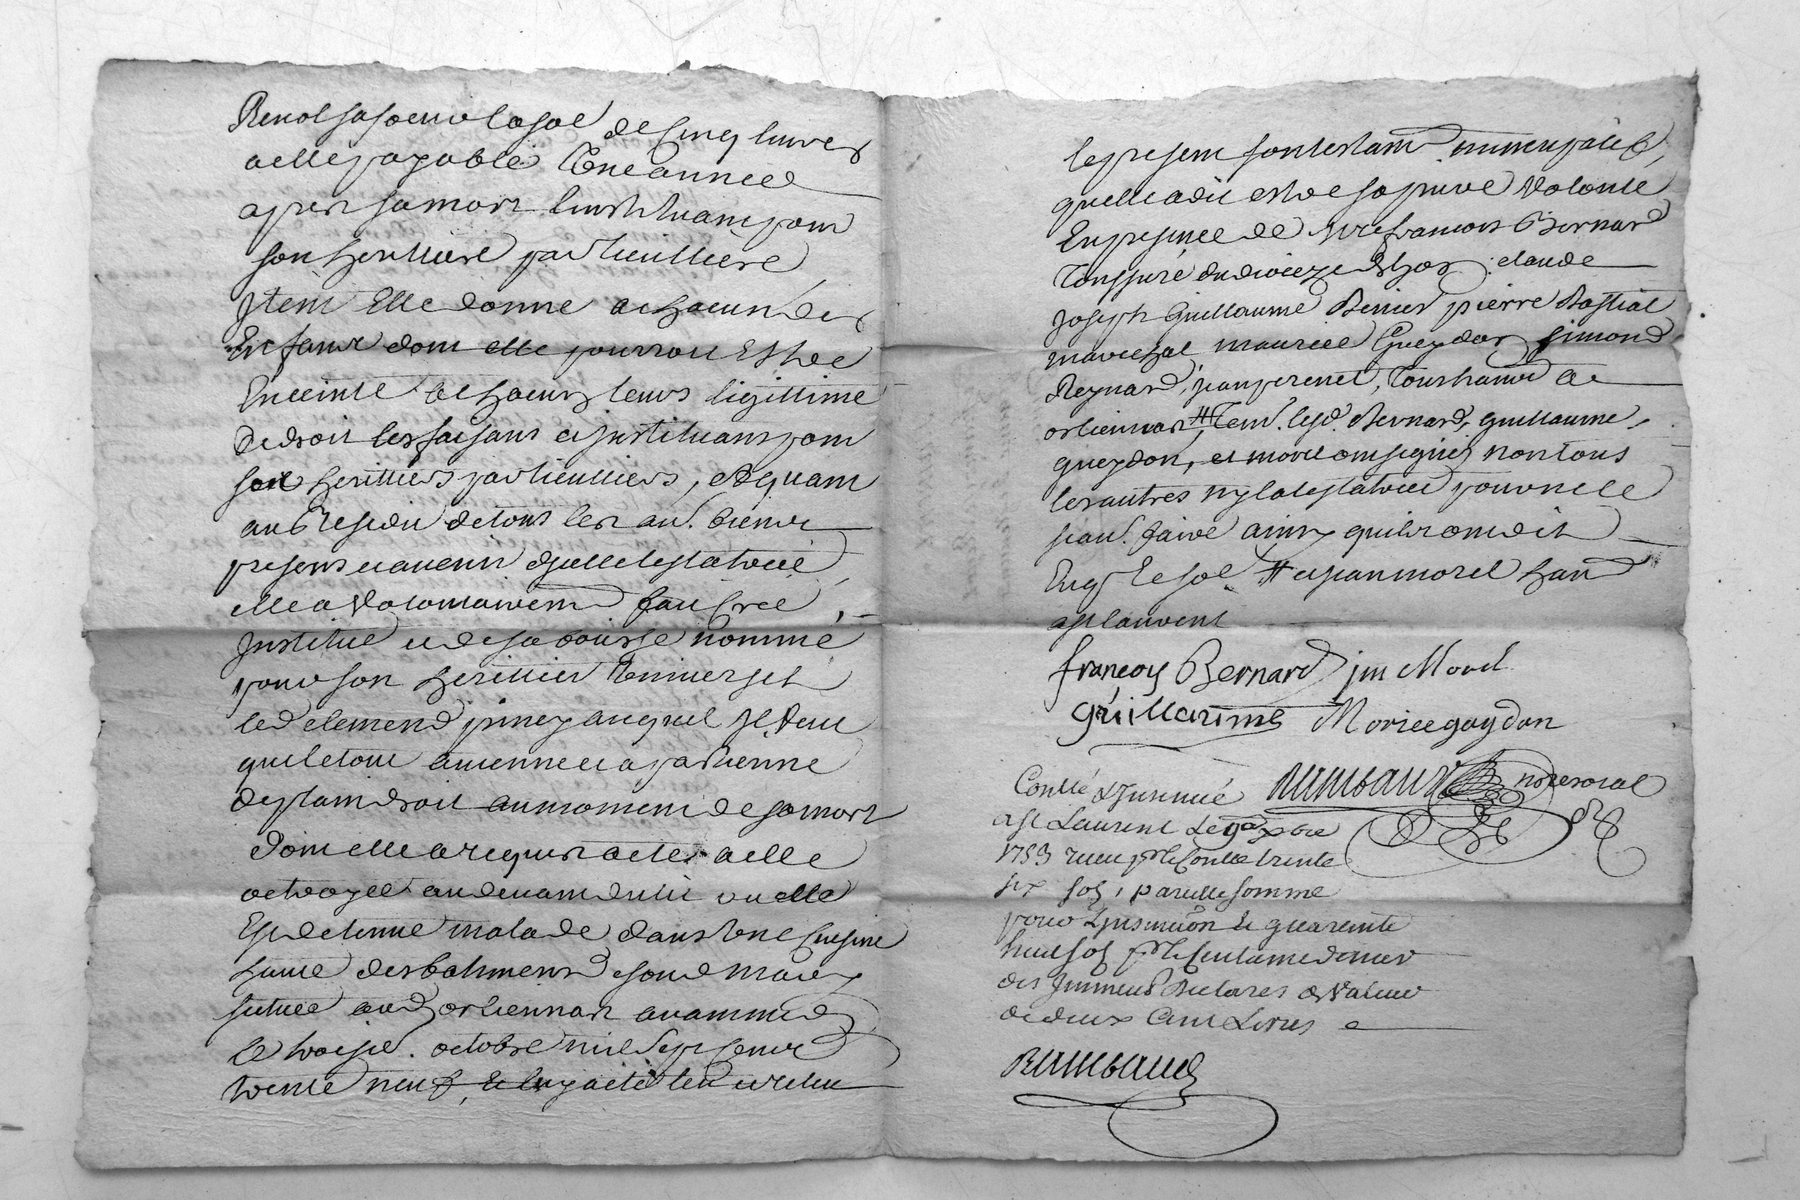 Renol sa soeur la soe de cinq livres
a elle payable Une année
apres sa mort l'instituant pour
son heritiere particulliere
Item Elle donne a chacun des
Enfans dont elle pourroit Estre
Enceinte a chacun leurs legitime
De droit les faisans et instituans pour
ses heritiers particulliers, et quant
au Residu de tous les aus. biens
presens et avenir d'elle testatrice
elle a Volontairemt fait cree,
Institué et de sa bousse nommé
pour son heritier Universel
led clemend piney auquel Il Veut
que le tout avienne et apartienne
de plain droit au moment de sa mort
dont elle a requis acte a elle
octroyée au devant du lit ou elle
Est detenue malade dans Une Cuisine
haute des batimens desond mary
située aud orliennas avant midy
le troisie. octobre mil Sept Cens
trente neuf, et luy a été leu et releu
le present son testamt nuncupatif,
quelle a dit estre sa pure Volonté
En presence de Mre francois Bernard
Tonsuré du dioceze claude
Joseph Guillaume Renier pierre Bastial
marechal, maurice Gueydon simond
Reynard, jean perenet, Tous habans de
orliennas # Tem. led. Bernard, guillaume
gueydon, et morel ont signés non tous
les autres ny la testatrice pour ne le
scav. faire ainsy quils ont dit
Enq. le soe # et jean morel hand
a st lauvent
françois Bernard jm Morel
Guillaume Moricegaydon
Conllé & Insinué Raimbaud not royal
a St Laurent Le 9e xbre
1739 receu pr le Conlle trente
six sols, pareille somme
pour Linsinuaon et quarente
huit sols pr le Centieme denier
des Immeub Declares de Valeur
de deux Cent Livres
Raimbaud